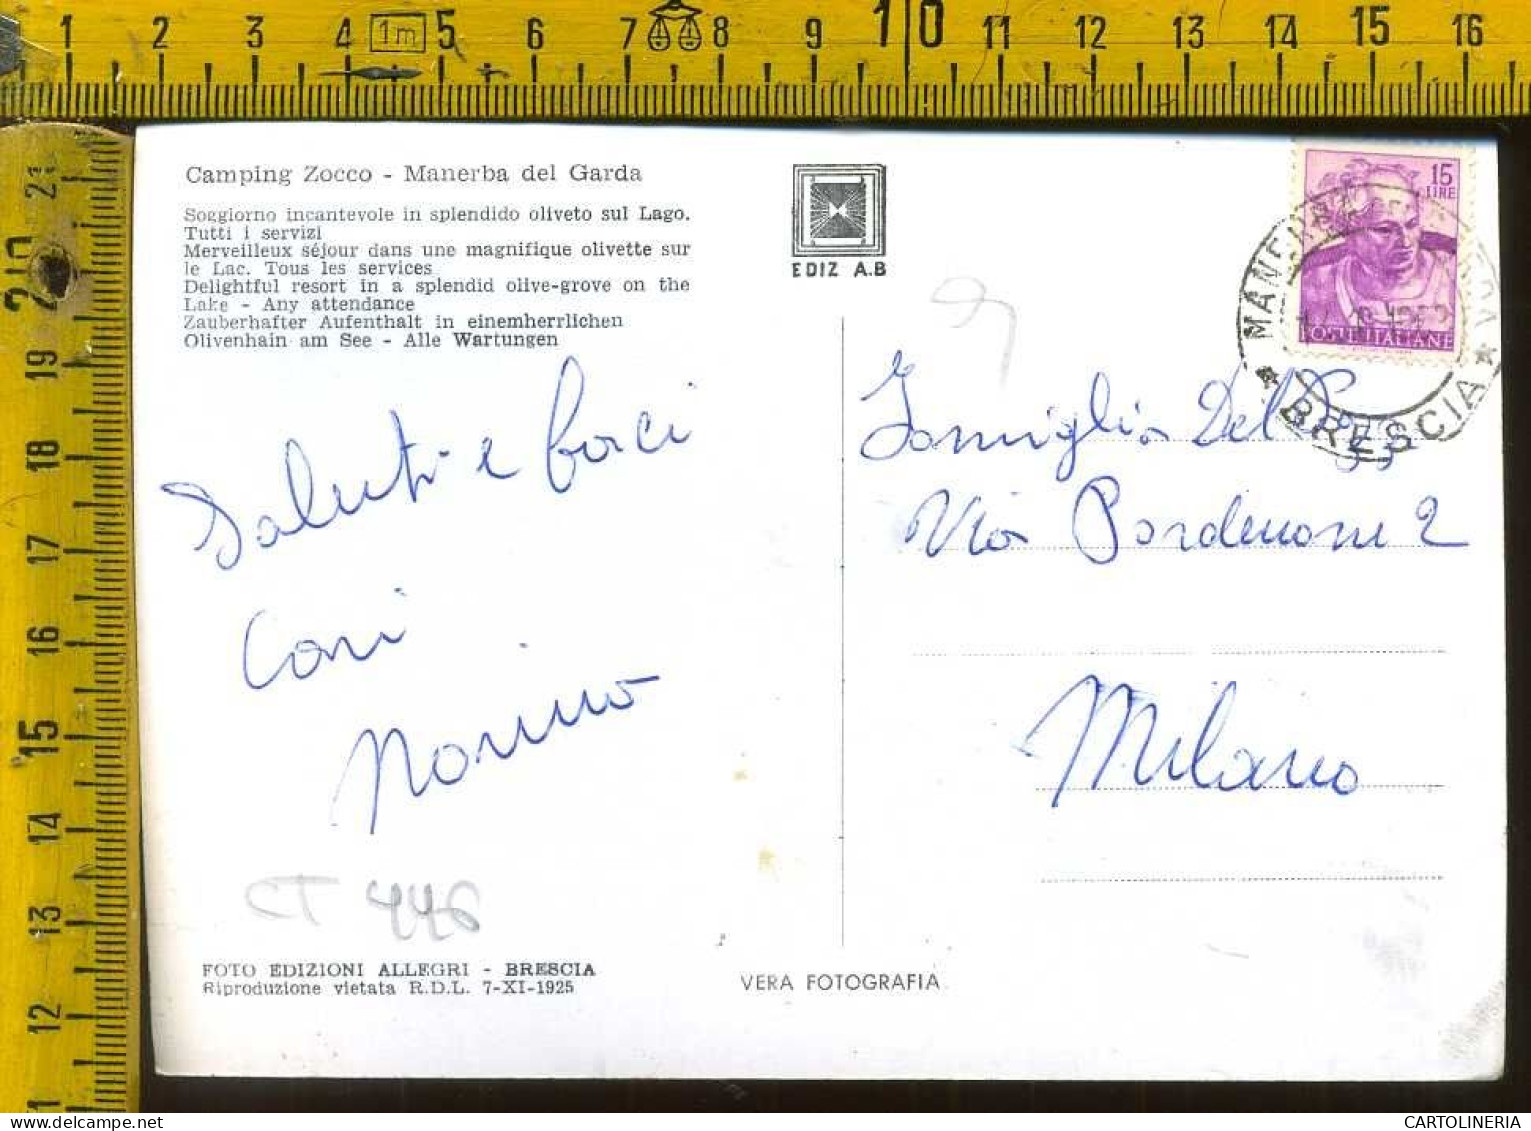 1 2 3 4 1m 5 6 7 8 9 10 11 12 13 14 15 16
21
20
19
18
17
16
15
14
13
12
11
Camping Zocco - Manerba del Garda
Soggiorno incantevole in splendido oliveto sul Lago.
Tutti i servizi
Merveilleux séjour dans une magnifique olivette sur
le Lac. Tous les services
Delightful resort in a splendid olive-grove on the
Lake - Any attendance
Zauberhafter Aufenthalt in einemherrlichen
Olivenhain am See - Alle Wartungen
Saluti e baci
Cari
Marino
CT 446
FOTO EDIZIONI ALLEGRI - BRESCIA
Riproduzione vietata R.D.L. 7-XI-1925
EDIZ A.B
VERA FOTOGRAFIA
15
LIRE
POSTE ITALIANE
MANERBA DEL GARDA
* BRESCIA *
Famiglia Del
Via Pordenone 2
Milano
CARTOLINERIA